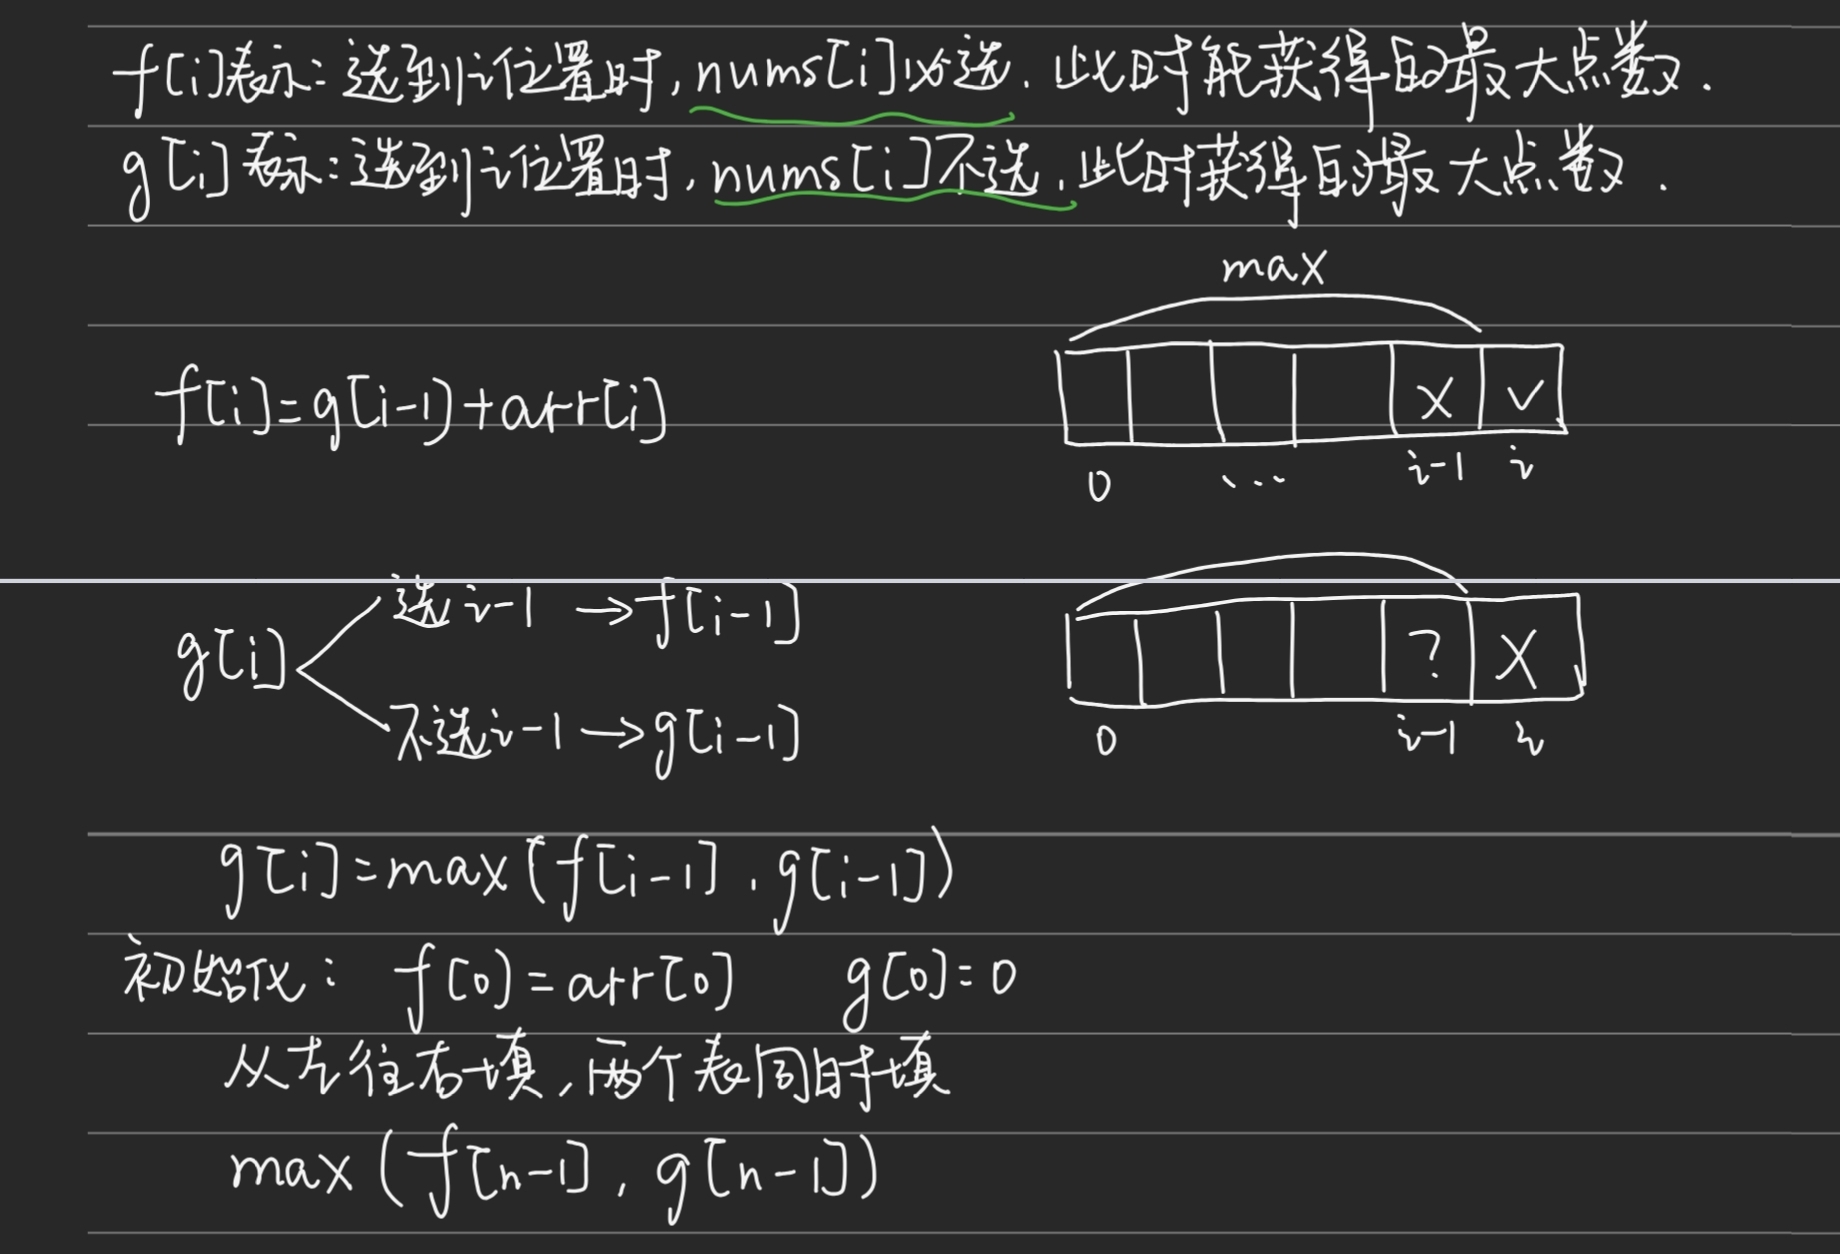 f[i]表示：选到i位置时，nums[i]必选．此时能获得的最大点数．
g[i]表示：选到i位置时，nums[i]不选．此时获得的最大点数．
max
f[i]=g[i-1]+arr[i]
x v
0 ... i-1 i
选i-1 →f[i-1]
g[i]
? x
不选i-1→g[i-1]
0 i-1 i
g[i]=max(f[i-1],g[i-1])
初始化：f[0]=arr[0] g[0]=0
从左往右填，两个表同时填
max(f[n-1],g[n-1])